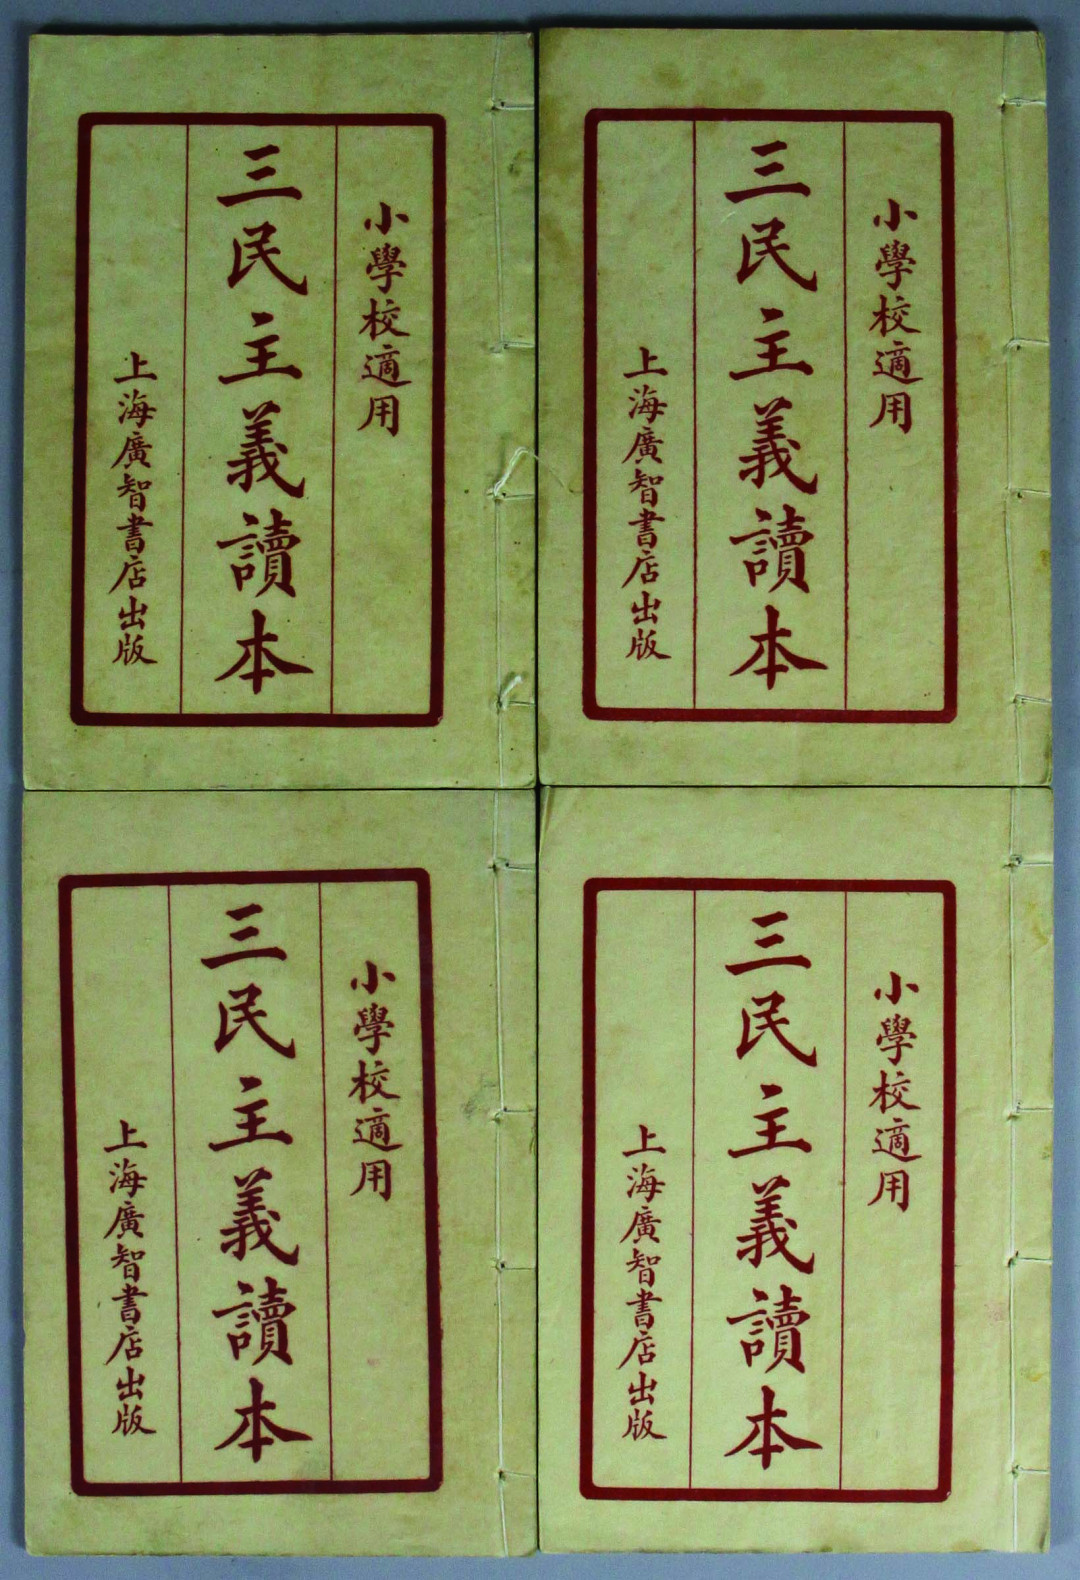 小學校適用
三民主義讀本
上海廣智書店出版
小學校適用
三民主義讀本
上海廣智書店出版
小學校適用
三民主義讀本
上海廣智書店出版
小學校適用
三民主義讀本
上海廣智書店出版